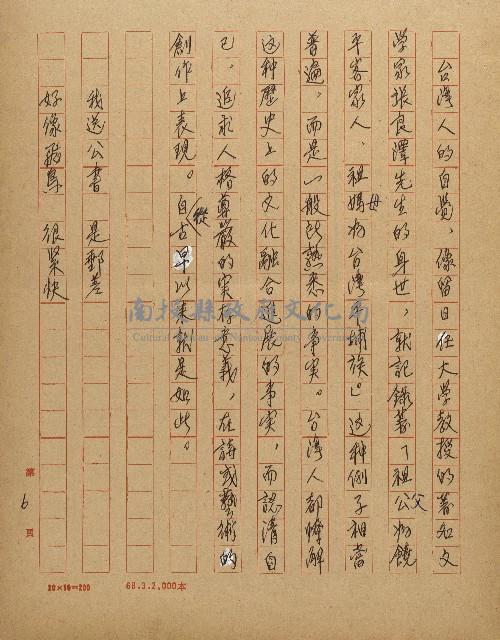 台灣人的自覺，像留日任大学教授的著如文
学家張良澤先生的身世，就記錄著「祖公父為饒
平客家人，祖媽母為台灣平埔族」这种例子相當
普遍，而是一般所熟悉的事実。台灣人都瞭解
这种歷史上的文化融合進展的事実，而認清自
己，追求人格尊嚴的実存意義，在詩或藝術的
創作上表現。自從古早以来就是如此。
我送公書 是郵差
好像騎馬 很緊快
第6頁
20×10=200 68.3.2,000本
南投縣政府文化局
Cultural Affairs Bureau Nantou County Government